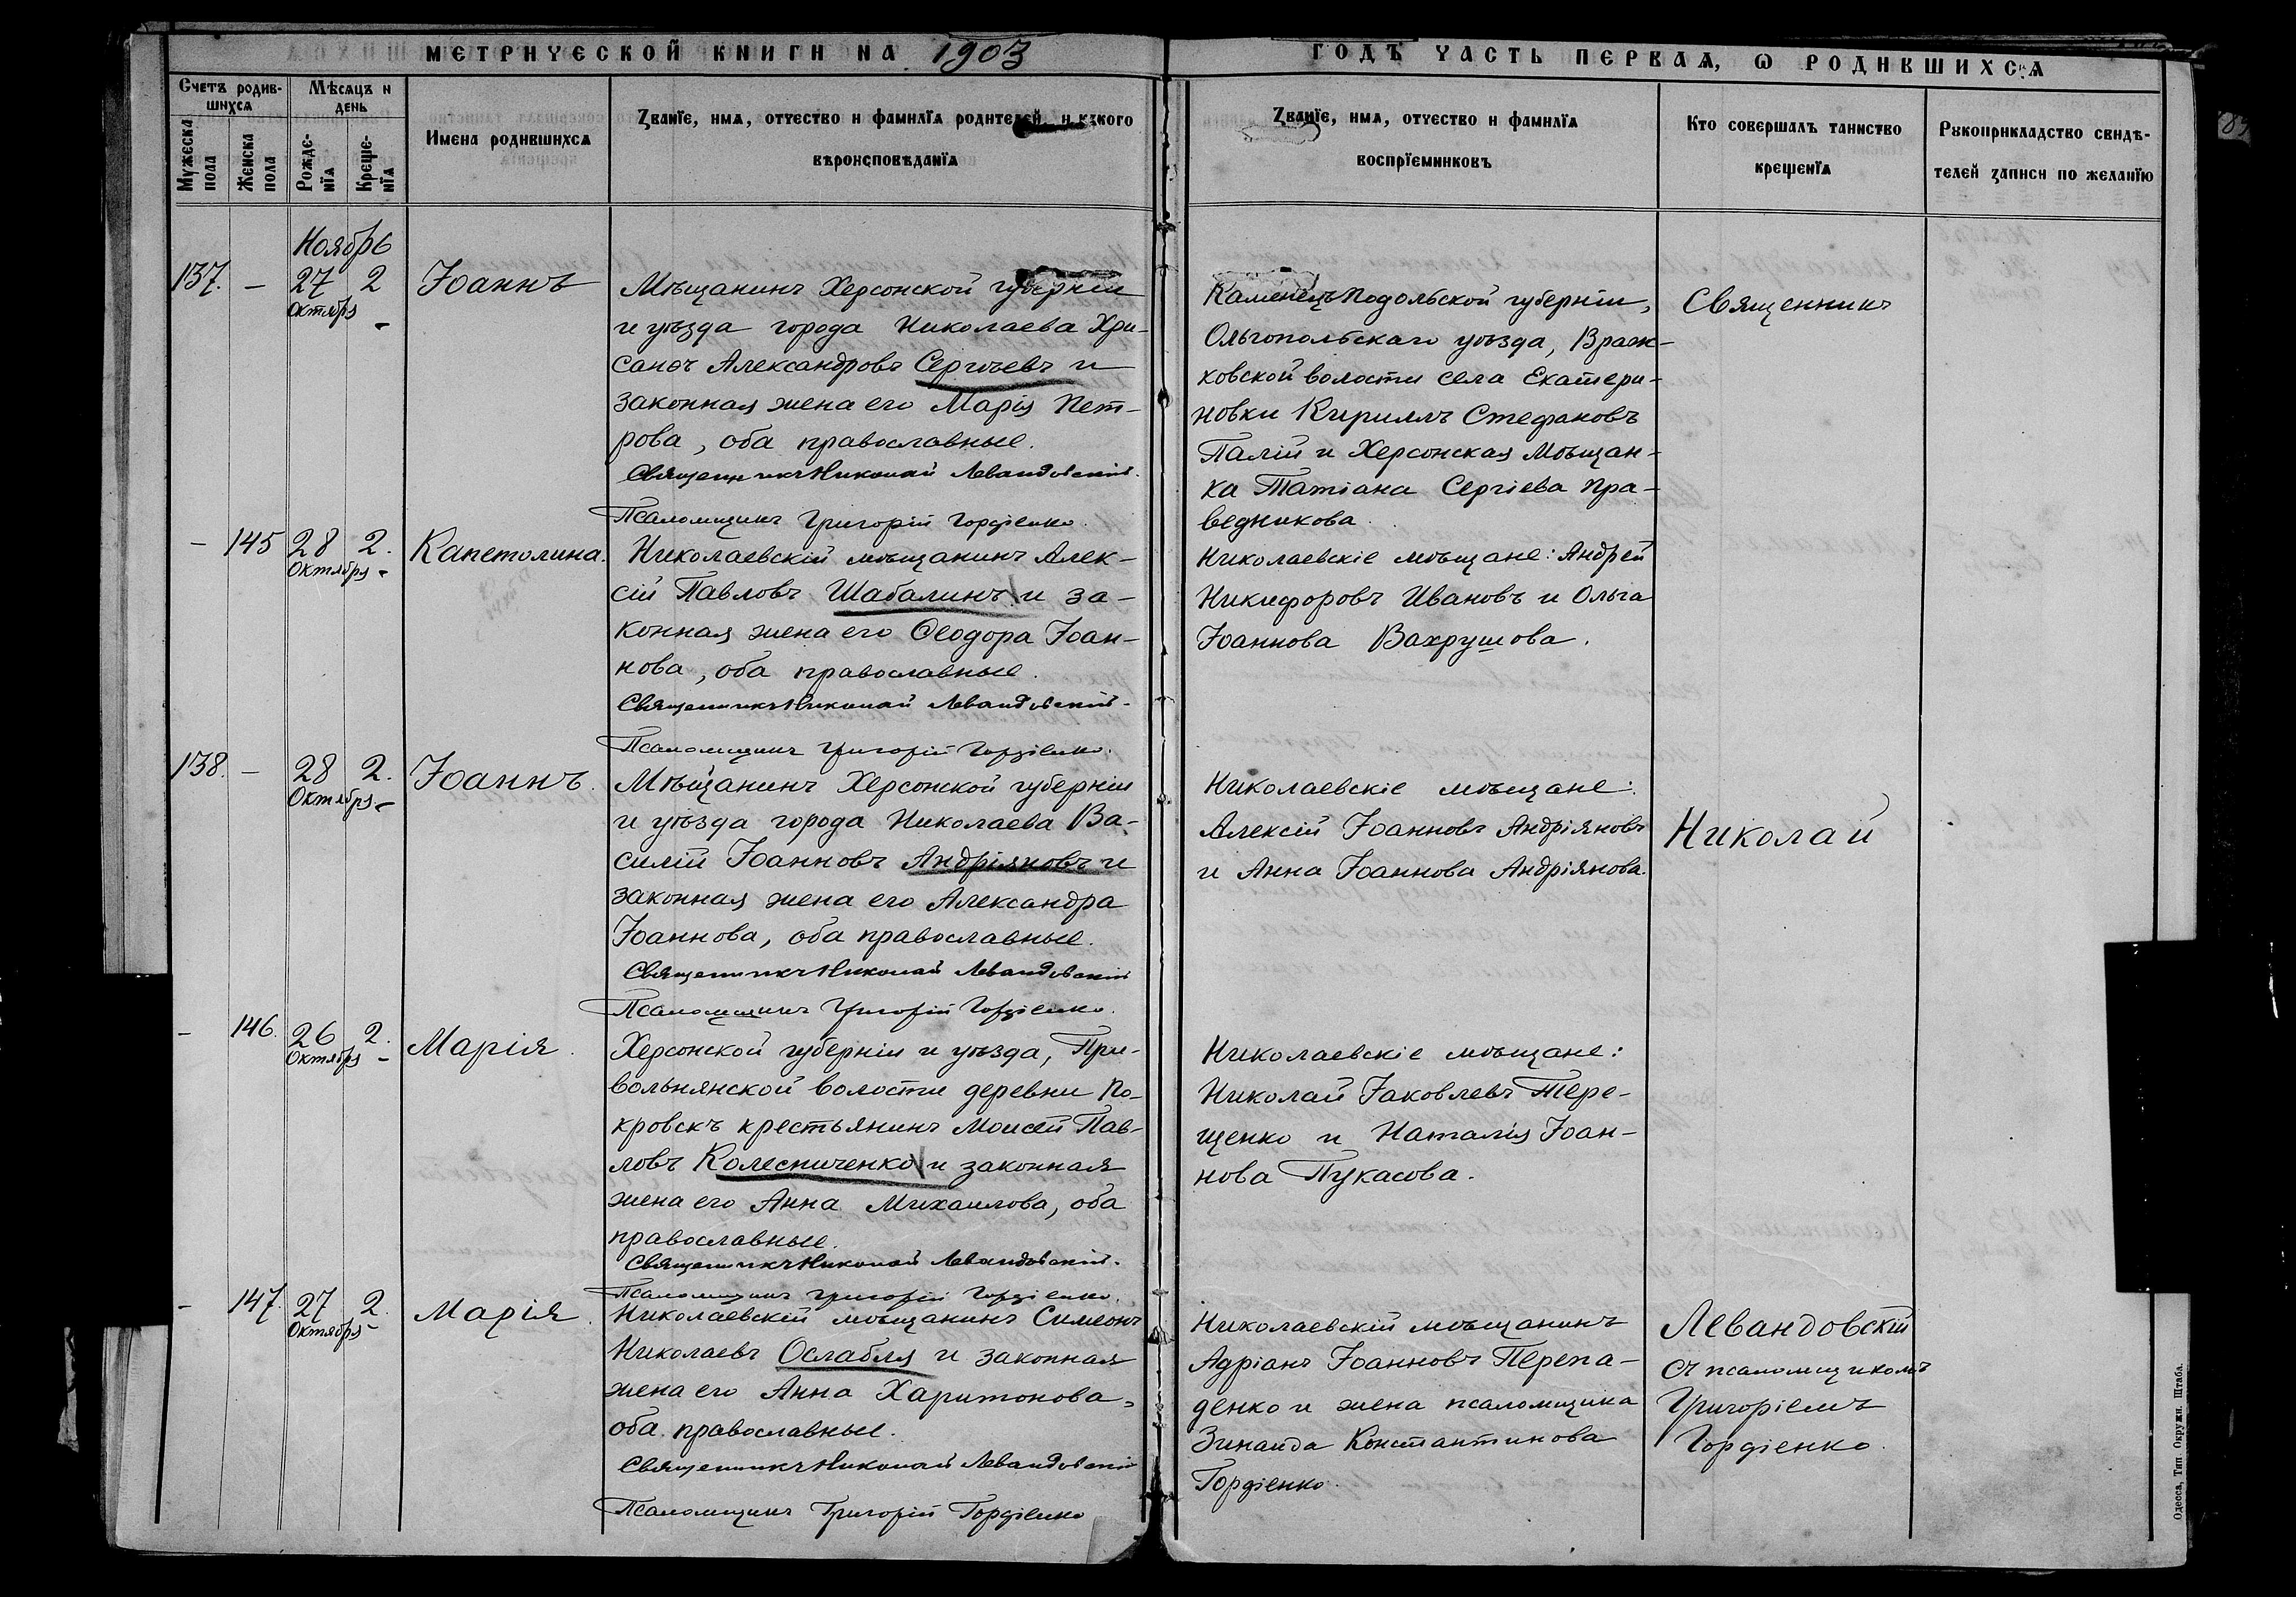 МЕТРИЧЕСКОЙ КНИГИ НА 1903
ГОДЪ ЧАСТЬ ПЕРВАЯ, Ѡ РОДИВШИХСЯ
Счетъ родив-
шихся
Мѣсяцъ и
день
Мужеска
пола
Женска
пола
Рожде-
нїя
Креще-
нїя
Имена родившихся
Званїе, имя, отчество и фамилїя родителей, и какого
вѣроисповѣданїя
Званїе, имя, отчество и фамилїя
воспрїемниковъ
Кто совершалъ таинство
крещенїя
Рукоприкладство свидѣ-
телей записи по желанїю
Ноябрь
137. - 27 2
Октября -
Іоаннъ
Мѣщанинъ Херсонской губерніи
и уѣзда города Николаева Хри-
санѳъ Александровъ Сергѣевъ и
законная жена его Марія Пет-
рова, оба православные.
Священникъ Николай Левандовскій.
Псаломщикъ Григорій Гордіенко.
Каменецъ Подольской губерніи,
Ольгопольскаго уѣзда,
ковской волости села Екатери-
новки Кириллъ Стефановъ
Палій и Херсонская мѣщан-
ка Татіана Сергіева Пра-
ведникова.
Священникъ
- 145 28 2.
Октября -
Капетолина.
Николаевскій мѣщанинъ Алек-
сій Павловъ Шабалинъ и за-
конная жена его Ѳеодора Іоан-
нова, оба православные.
Священникъ Николай Левандовскій.
Псаломщикъ Григорій Гордіенко.
Николаевскіе мѣщане: Андрей
Никифоровъ Ивановъ и Ольга
Іоаннова Вахрушова.
138. - 28 2.
Октября -
Іоаннъ.
Мѣщанинъ Херсонской губерніи
и уѣзда города Николаева Ва-
силій Іоанновъ Андріяновъ и
законная жена его Александра
Іоаннова, оба православные.
Священникъ Николай Левандовскій
Псаломщикъ Григорій Гордіенко.
Николаевскіе мѣщане:
Алексій Іоанновъ Андріяновъ
и Анна Іоаннова Андріянова.
Николай
- 146. 26 2.
Октября -
Марія.
Херсонской губерніи и уѣзда, При-
вольнянской волости деревни По-
кровскъ крестьянинъ Моисей Пав-
ловъ Колесниченко и законная
жена его Анна Михаилова, оба
православные.
Священникъ Николай Левандовскій.
Псаломщикъ Григорій Гордіенко.
Николаевскіе мѣщане:
Николай Іаковлевъ Тере-
щенко и Наталія Іоан-
нова Пукасова.
- 147. 27 2.
Октября -
Марія.
Николаевскій мѣщанинъ Симеонъ
Николаевъ Ослабля и законная
жена его Анна Харитонова,
оба православные.
Священникъ Николай Левандовскій
Псаломщикъ Григорій Гордіенко
Николаевскій мѣщанинъ
Адріанъ Іоанновъ Перепа-
денко и жена псаломщика
Зинаида Константинова
Гордіенко.
Левандовскій
съ псаломщикомъ
Григоріемъ
Гордіенко.
Одесса, Тип. Окружн. Штаба.